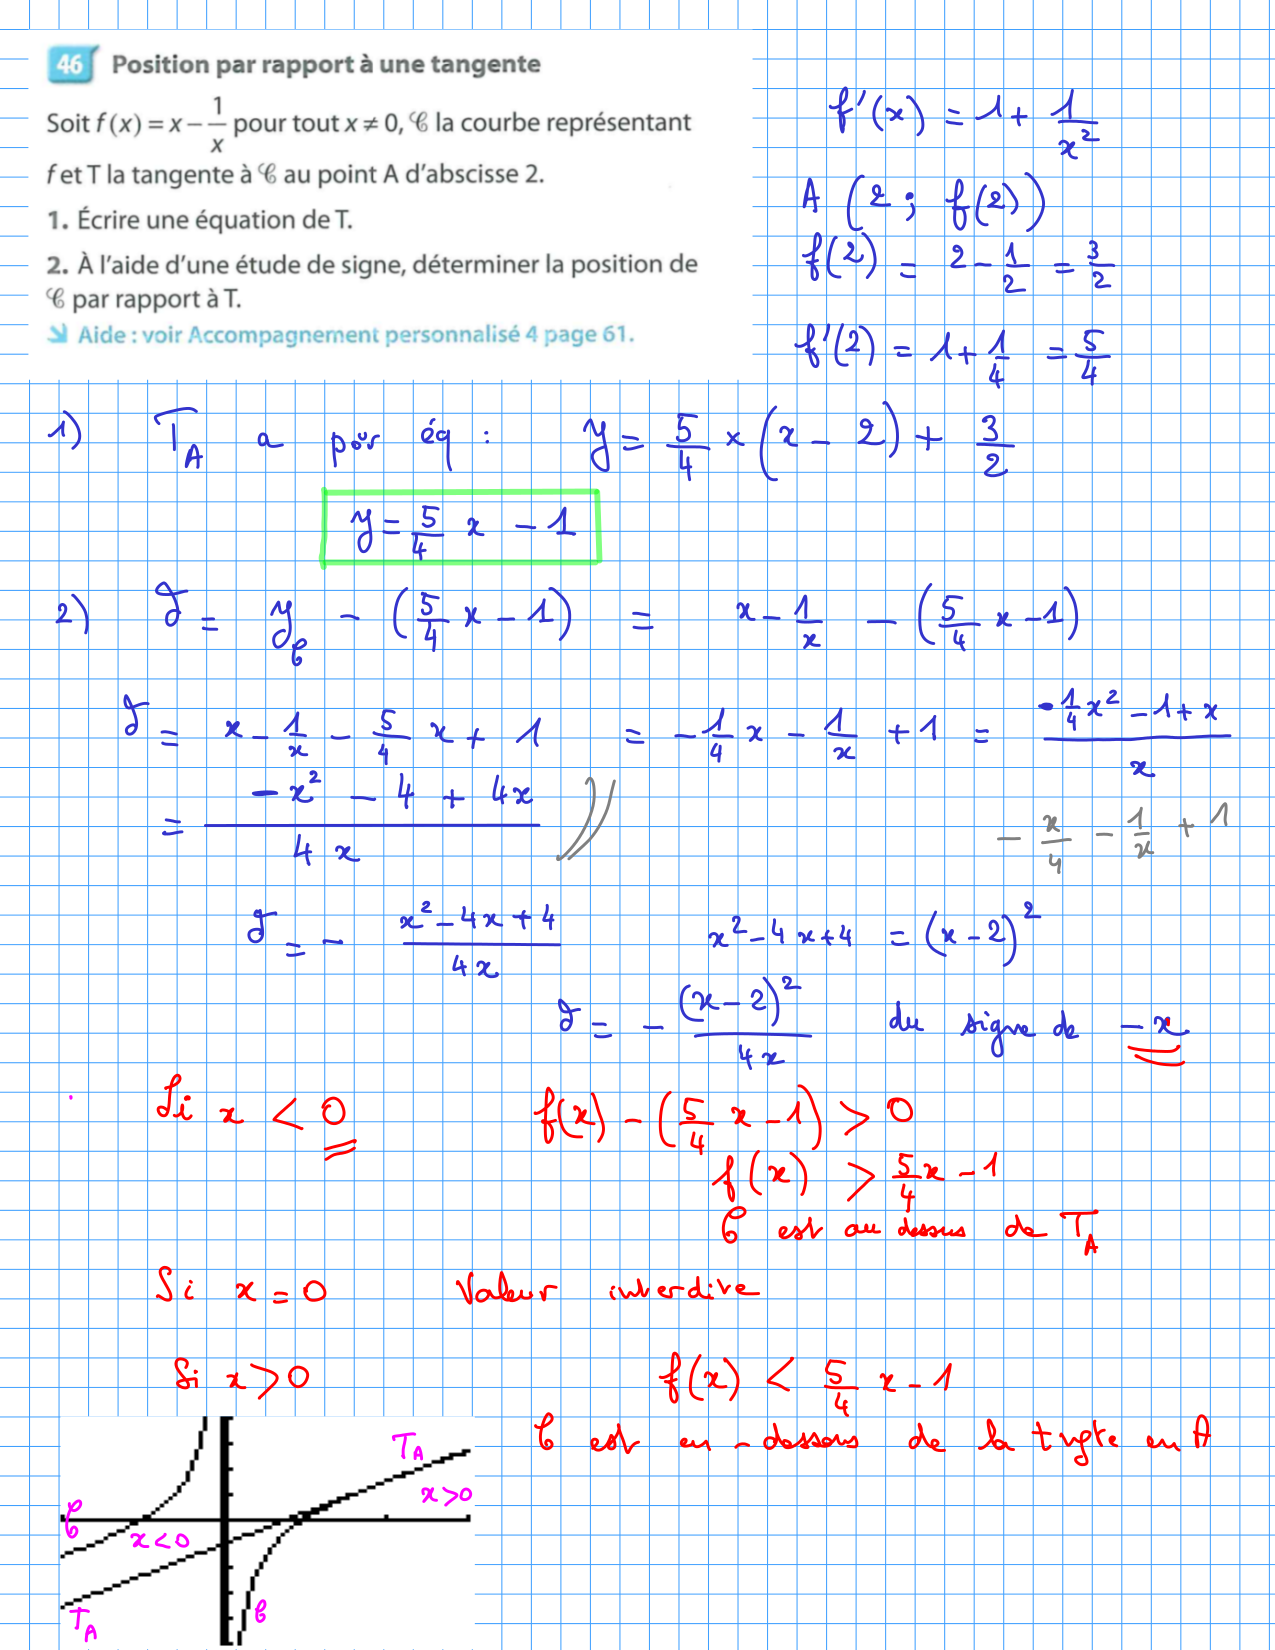 46 Position par rapport à une tangente
Soit f(x) = x - 1/x pour tout x ≠ 0, 𝒞 la courbe représentant
f et T la tangente à 𝒞 au point A d'abscisse 2.
1. Écrire une équation de T.
2. À l'aide d'une étude de signe, déterminer la position de
𝒞 par rapport à T.
Aide : voir Accompagnement personnalisé 4 page 61.
f'(x) = 1 + 1/x²
A (2 ; f(2))
f(2) = 2 - 1/2 = 3/2
f'(2) = 1 + 1/4 = 5/4
1) T_A a pour éq : y = 5/4 × (x - 2) + 3/2
y = 5/4 x - 1
2) d = y_𝒞 - (5/4 x - 1) = x - 1/x - (5/4 x - 1)
d = x - 1/x - 5/4 x + 1 = -1/4 x - 1/x + 1 = (-1/4 x² - 1 + x)/x
= (-x² - 4 + 4x)/(4x)
- x/4 - 1/x + 1
d = - (x² - 4x + 4)/(4x) x² - 4x + 4 = (x - 2)²
d = - (x - 2)²/(4x) du signe de -x
Si x < 0 f(x) - (5/4 x - 1) > 0
f(x) > 5/4 x - 1
𝒞 est au dessus de T_A
Si x = 0 Valeur interdite
Si x > 0 f(x) < 5/4 x - 1
𝒞 est en-dessous de la tngte en A
T_A
x > 0
𝒞
x < 0
𝒞
T_A